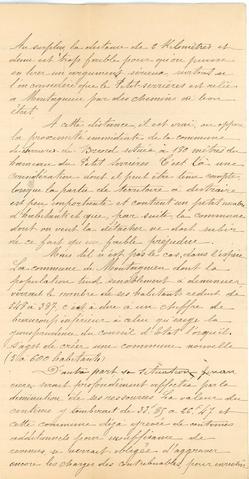 Au surplus la distance de 2 kilomètres et
demi est trop faible pour qu'on puisse
en tirer un argument sérieux surtout si
l'on considère que le Petit- est relié
à Montagneux par des chemins de bon
état.
A cette distance, il est vrai, on oppose
la proximité immédiate de la commune
de située à 180 mètres du
hameau du Petit C'est là une
considération dont il peut être tenu compte
lorsque la partie de territoire à distraire
est peu importante et contient un petit nombre
d'habitants et que, par suite, la commune
dont on veut la détacher ne doit subir
de ce fait qu'un faible préjudice.
Mais tel n'est pas le cas, dans l'espèce
La commune de Montagneux dont la
population tend sensiblement à diminuer
verrait le nombre de ses habitants réduit de
549 à 397, c'est à dire à un chiffre de
beaucoup inférieur à celui qu'exige la
jurisprudence du Conseil d'Etat lorsqu'il
s'agit de créer une commune nouvelle
(600 habitants)
D'autre part sa situation finan
cière serait profondément affectée par la
diminution de ses ressources La valeur du
centime y tomberait de à et
cette commune déjà grevée de centimes
additionnels pour insuffisance de
revenus se verrait obligée d'aggraver
encore les charges des contribuables pour